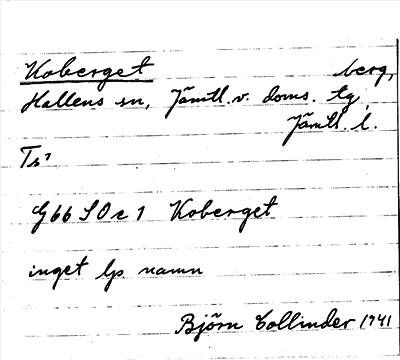 Koberget berg,
Hallens sn, Jämtl. v. doms. tg,
Jämtl. l.
Ts?
G66 SO c 1 Koberget
inget ljs namn
Björn Collinder 1941